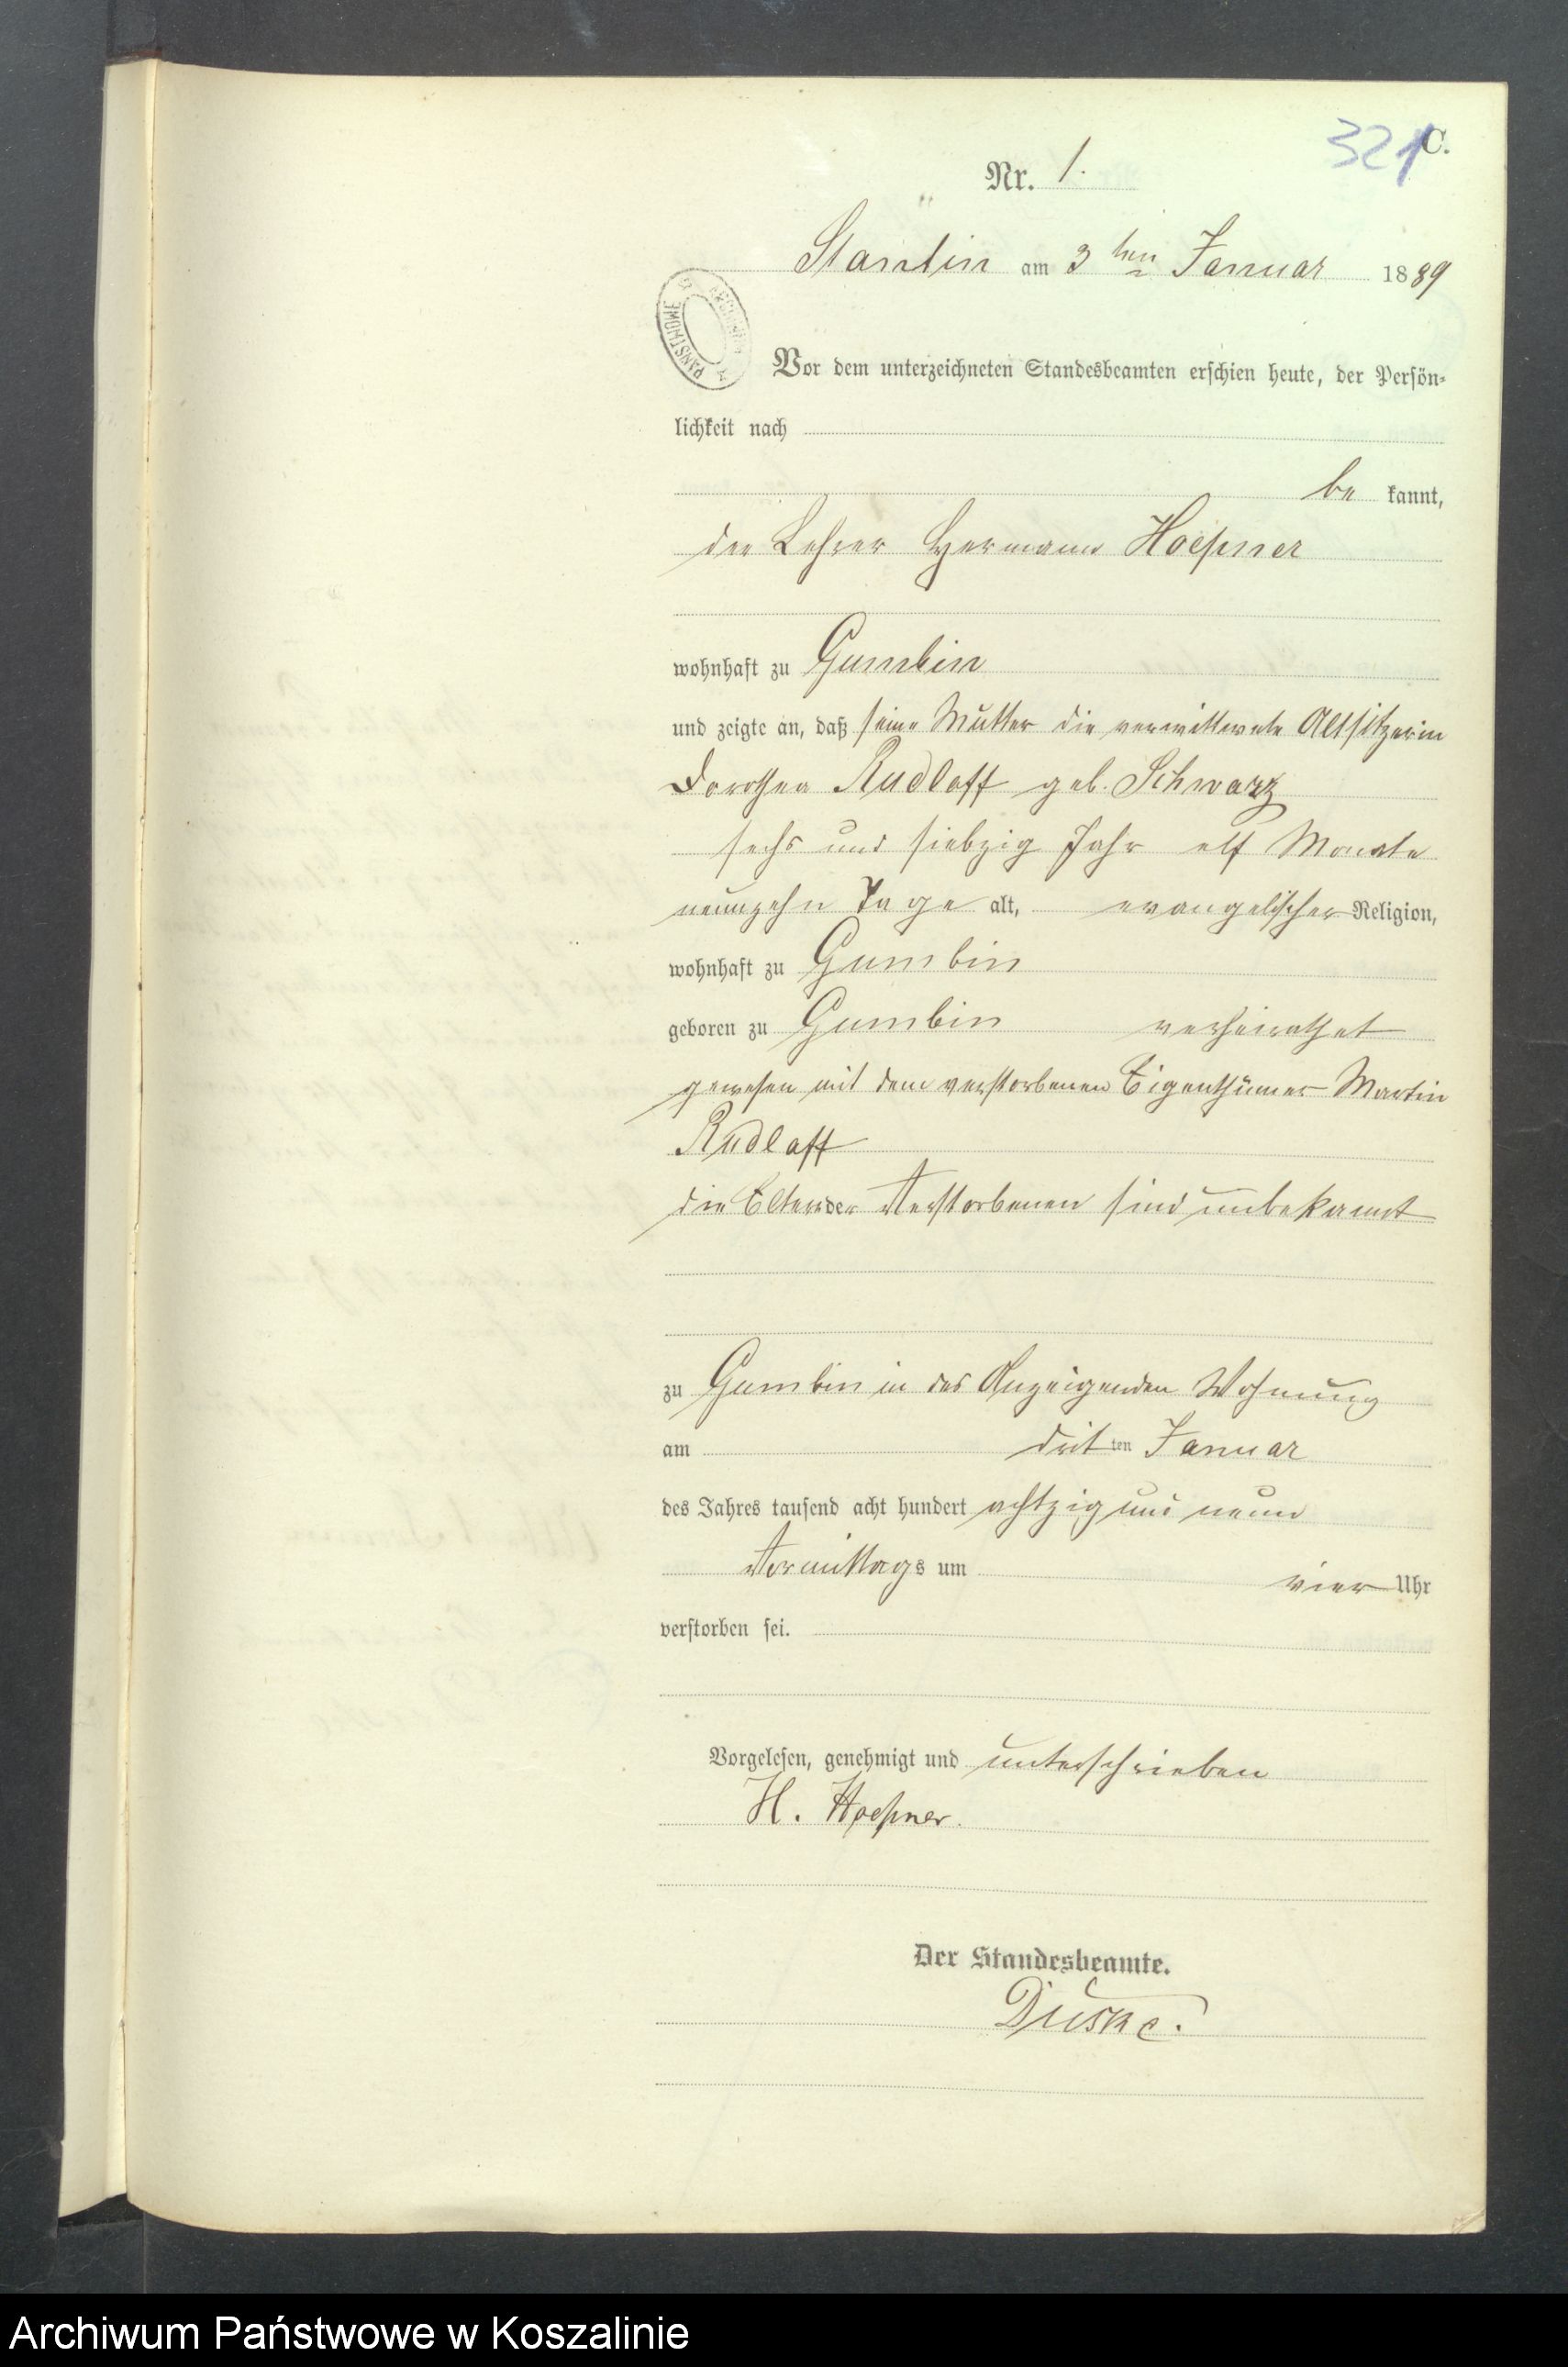 321 C.
Nr. 1.
Stantin am 3 ten Januar 1889
Vor dem unterzeichneten Standesbeamten erschien heute, der Persön-
lichkeit nach
be kannt,
der Lehrer Hermann Hoepner
wohnhaft zu Gumbin
und zeigte an, daß seine Mutter die verwittwete Altsitzerin
Dorothea Rudloff geb. Schwarz
sechs und siebzig Jahr elf Monate
neunzehn Tage alt, evangelischer Religion,
wohnhaft zu Gumbin
geboren zu Gumbin verheirathet
gewesen mit dem verstorbenen Eigenthümer Martin
Rudloff
die Eltern der Verstorbenen sind unbekannt
zu Gumbin in des Anzeigenden Wohnung
am drit ten Januar
des Jahres tausend acht hundert achtzig und neun
Vormittags um vier Uhr
verstorben sei.
Vorgelesen, genehmigt und unterschrieben
H. Hoepner.
Der Standesbeamte.
Duske.
Archiwum Państwowe w Koszalinie